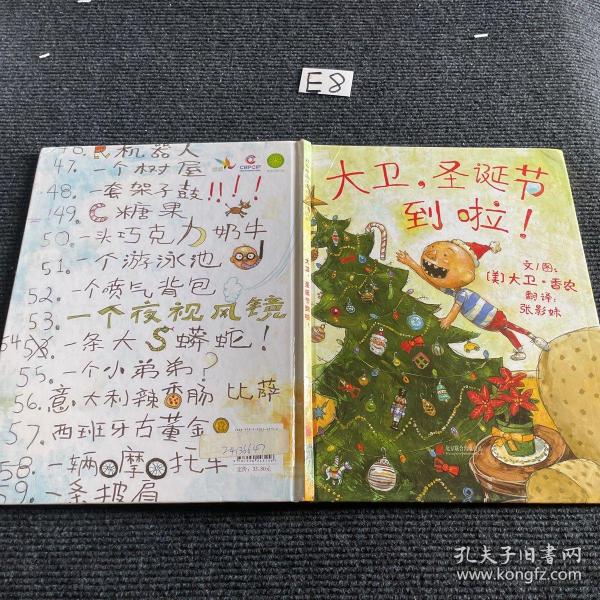 E8
46. 机器人
47. 一个树屋
48. 一套架子鼓!!!!
49. 糖果
50. 一头巧克力奶牛
51. 一个游泳池
52. 一个喷气背包
53. 一个夜视风镜
54. 一条大S蟒蛇!
55. 一个小弟弟?
56. 意大利辣香肠比萨
57. 西班牙古董金
58. 一辆摩托车
59. 一条披肩
CBPCIP
24136647
定价: 35.80元
大卫，圣诞节到啦!
大卫，圣诞节
到啦!
文/图:
[美]大卫·香农
翻译:
张影妹
北京联合出版公司
孔夫子旧书网
www.kongfz.com